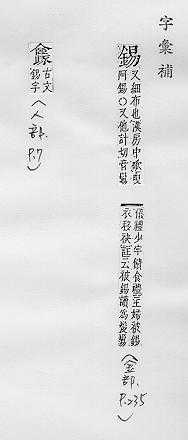 字彙補
錫
又細布也漢房中歌曳
阿錫○又他計切音髢
儀禮少牢饋食禮主婦被錫
衣移袂註云被錫讀為髲鬄
(金部、P.235)
古文
錫字
(人部、P.7)